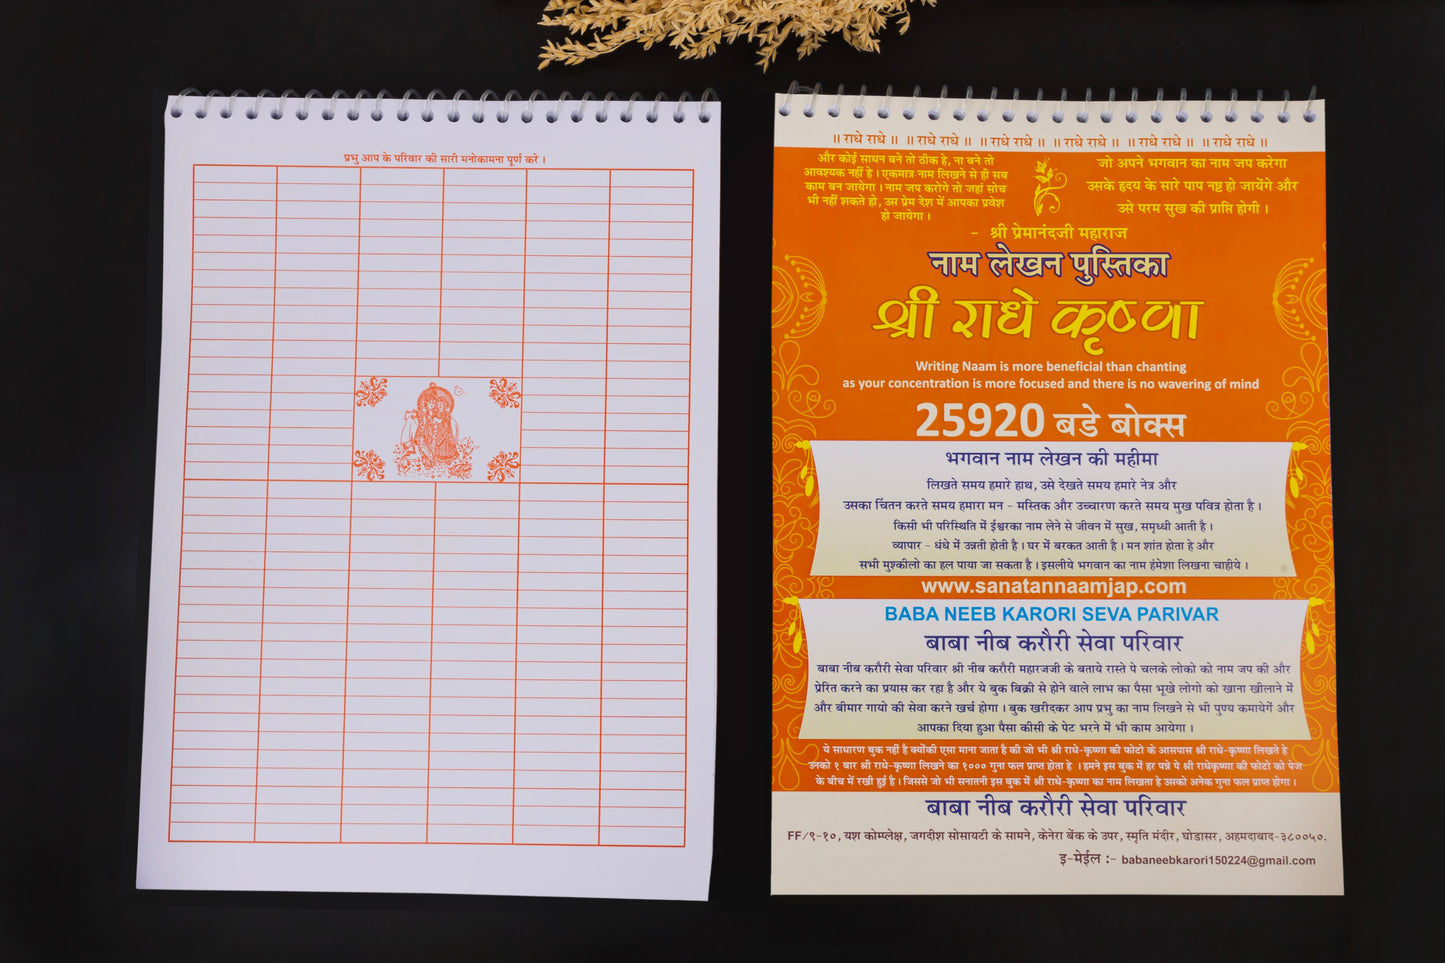 प्रभु आप के परिवार की सारी मनोकामना पूर्ण करे ।
॥ राधे राधे ॥ ॥ राधे राधे ॥ ॥ राधे राधे ॥ ॥ राधे राधे ॥ ॥ राधे राधे ॥ ॥ राधे राधे ॥
और कोई साधन बने तो ठीक है, ना बने तो
आवश्यक नहीं है । एकमात्र नाम लिखने से ही सब
काम बन जायेगा । नाम जप करोगे तो जहां सोच
भी नहीं शकते हो, उस प्रेम देश में आपका प्रवेश
हो जायेगा ।
जो अपने भगवान का नाम जप करेगा
उसके ह्रदय के सारे पाप नष्ट हो जायेंगे और
उसे परम सुख की प्राप्ति होगी ।
- श्री प्रेमानंदजी महाराज
नाम लेखन पुस्तिका
श्री राधे कृष्णा
Writing Naam is more beneficial than chanting
as your concentration is more focused and there is no wavering of mind
25920 बडे बोक्स
भगवान नाम लेखन की महीमा
लिखते समय हमारे हाथ, उसे देखते समय हमारे नेत्र और
उसका चिंतन करते समय हमारा मन - मस्तिक और उच्चारण करते समय मुख पवित्र होता है ।
किसी भी परिस्थिति में ईश्वरका नाम लेने से जीवन में सुख, समृध्धी आती है ।
व्यापार - धंधे में उन्नती होती है । घर में बरकत आती है । मन शांत होता हे और
सभी मुश्कीलो का हल पाया जा सकता है । इसलीये भगवान का नाम हंमेशा लिखना चाहीये ।
www.sanatannaamjap.com
BABA NEEB KARORI SEVA PARIVAR
बाबा नीब करौरी सेवा परिवार
बाबा नीब करौरी सेवा परिवार श्री नीब करौरी महारजजी के बताये रास्ते पे चलके लोको को नाम जप की और
प्रेरित करने का प्रयास कर रहा है और ये बुक बिक्री से होने वाले लाभ का पैसा भूखे लोगो को खाना खीलाने में
और बीमार गायो की सेवा करने खर्च होगा । बुक खरीदकर आप प्रभु का नाम लिखने से भी पुण्य कमायेगें और
आपका दिया हुआ पैसा कीसी के पेट भरने में भी काम आयेगा ।
ये साधारण बुक नहीं है क्योंकी एसा माना जाता है की जो भी श्री राधे-कृष्णा की फोटो के आसपास श्री राधे-कृष्णा लिखते हे
उनको १ बार श्री राधे-कृष्णा लिखने का १००० गुना फल प्राप्त होता हे । हमने इस बुक में हर पन्ने पे श्री राधेकृष्णा की फोटो को पेज
के बीच में रखी हुई है । जिससे जो भी सनातनी इस बुक में श्री राधे-कृष्णा का नाम लिखता हे उसको अनेक गुना फल प्राप्त होगा ।
बाबा नीब करौरी सेवा परिवार
FF/९-१०, यश कोम्प्लेक्ष, जगदीश सोसायटी के सामने, केनेरा बेंक के उपर, स्मृति मंदीर, घोडासर, अहमदाबाद-३८००५०.
इ-मेईल :- babaneebkarori150224@gmail.com